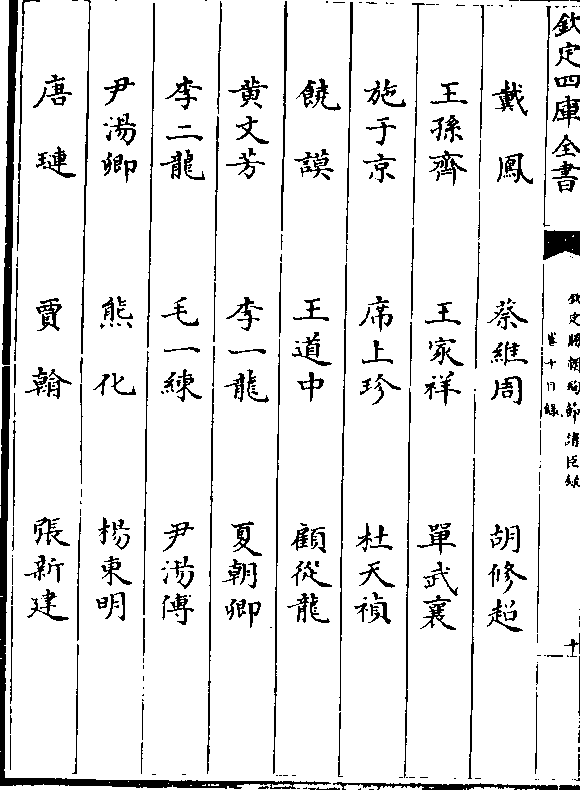 欽定四庫全書
欽定勝朝殉節諸臣録
卷十目録
十
戴鳳 蔡維周 胡修超
王孫齊 王家祥 單武襄
施于京 席上珍 杜天禎
饒謨 王道中 顧從龍
黄文芳 李一龍 夏朝卿
李二龍 毛一練 尹湯傅
尹湯卿 熊化 楊東明
唐璉 賈翰 張新建